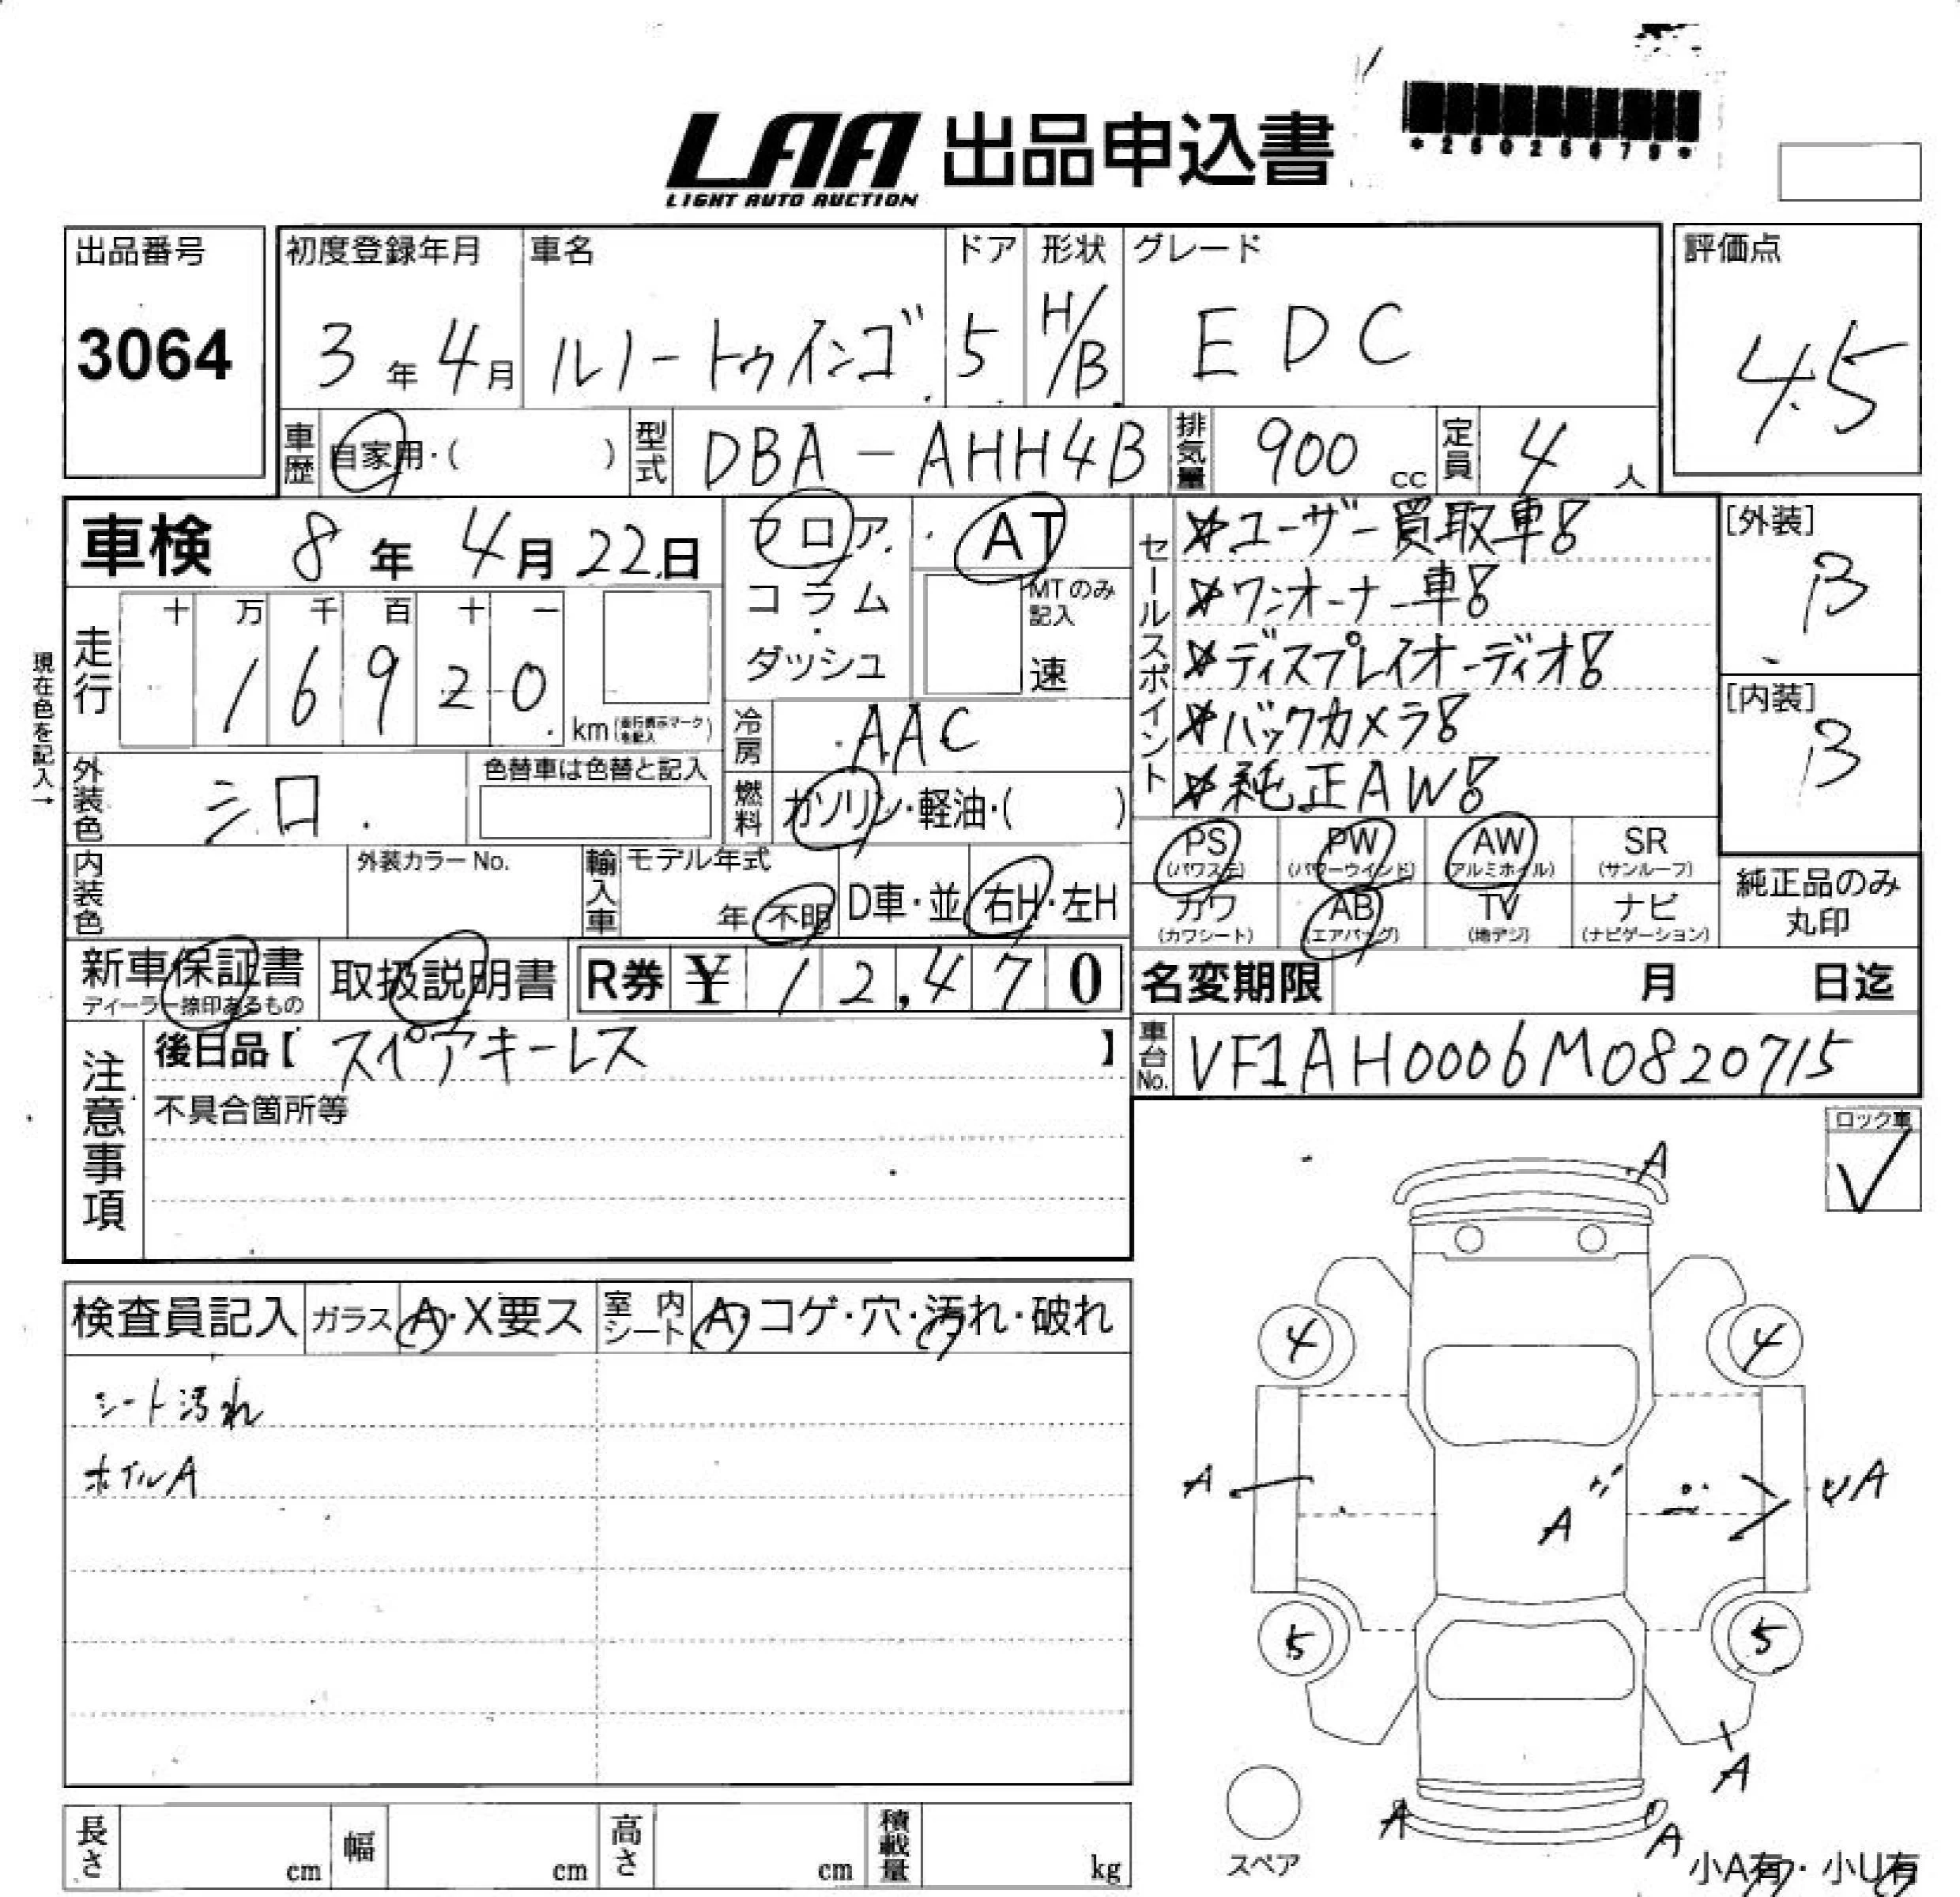 LAA 出品申込書
LIGHT AUTO AUCTION
出品番号
3064
初度登録年月 車名 ドア 形状 グレード
3年4月 ルノートゥインゴ 5 H/B EDC
評価点
4.5
車歴 自家用・( ) 型式 DBA-AHH4B 排気量 900cc 定員 4人
車検 8年4月22日
フロア・ AT
コラム・ MTのみ記入
ダッシュ 速
現在色を記入→
走行 十 万 千 百 十 一
16920 km (走行表示マークを記入)
冷房 AAC
外装色 シロ 色替車は色替と記入
燃料 ガソリン・軽油・( )
内装色 外装カラーNo. 輸入車 モデル年式 年 不明 D車・並 右H・左H
セールスポイント
☆ユーザー買取車!
☆ワンオーナー車!
☆ディスプレイオーディオ!
☆バックカメラ!
☆純正AW!
[外装]
B
[内装]
B
PS (パワステ) PW (パワーウインド) AW (アルミホイル) SR (サンルーフ)
カワ (カワシート) AB (エアバッグ) TV (地デジ) ナビ (ナビゲーション)
純正品のみ丸印
新車保証書 ディーラー捺印あるもの 取扱説明書 R券 ¥ 12,470
名変期限 月 日迄
車台No. VF1AH0006M0820715
注意事項
後日品【 スペアキーレス 】
不具合箇所等
ロック車
✓
検査員記入 ガラス A・X要ス 室内シート A・コゲ・穴・汚れ・破れ
シート汚れ
ホイルA
A
4 4
A A UA
5 5
A
A A
スペア
小A有・小U有
長さ cm 幅 cm 高さ cm 積載量 kg